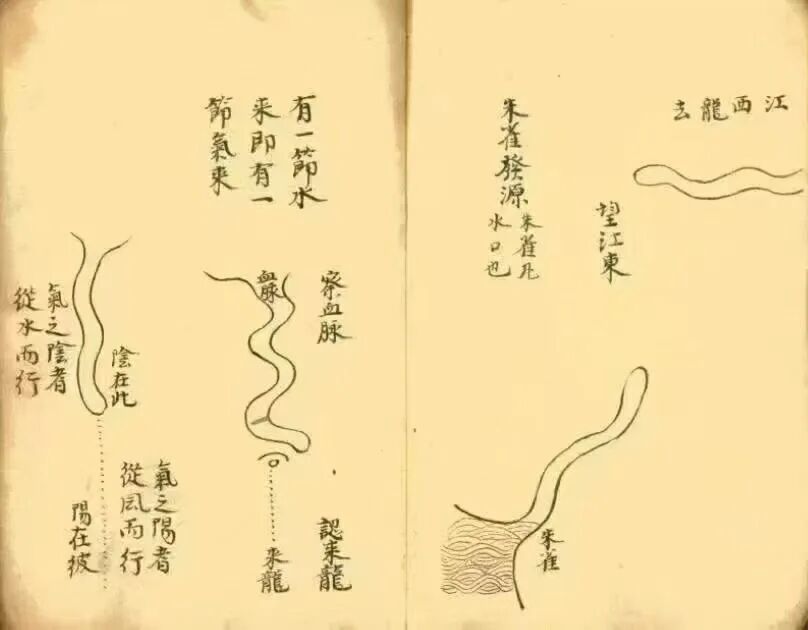 江西龍去
望江東
朱雀發源
朱雀即
水口也
朱雀
有一節水
来即有一
節氣来
察血脉
血脉
認来龍
来龍
陰在此
氣之陰者
從水而行
氣之陽者
從風而行
陽在彼